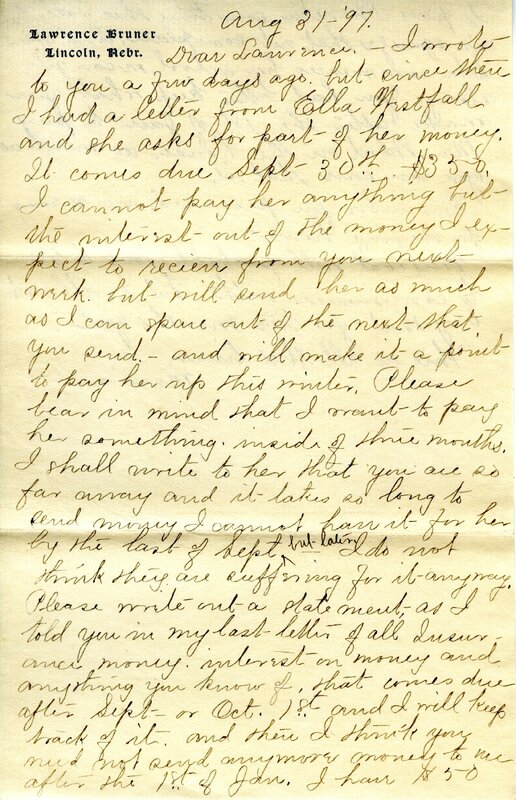 Lawrence Bruner
Lincoln, Nebr.
Aug 31 - '97.
Dear Lawrence. - I wrote
to you a few days ago. but since then
I had a letter from Ella Westfall
and she asks for part of her money.
It comes due Sept 30th - $350.
I cannot pay her anything but
the interest out of the money I ex-
pect to recieve from you next
week. but will send her as much
as I can spare out of the next that
you send - and will make it a point
to pay her up this winter. Please
bear in mind that I want to pay
her something. inside of three months.
I shall write to her that you are so
far away and it takes so long to
send money I cannot have it for her
by the last of Sept but later I do not
think they are suffering for it anyway.
Please write out a statement as I
told you in my last letter of all Insur-
ance money. interest on money and
anything you know of, that comes due
after Sept - or Oct. 1st and I will keep
track of it. and then I think you
need not send anymore money to me
after the 1st of Jan. I have $50